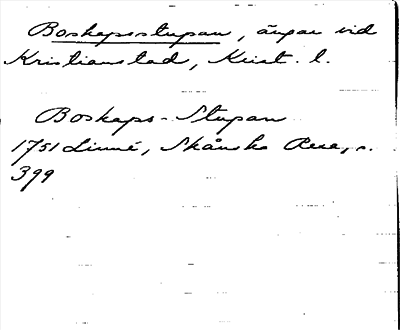 Boskapsstupan, ängar vid
Kristianstad, Krist. l.
Boskaps-Stupan
1751 Linné, Skånska Resa, s.
399